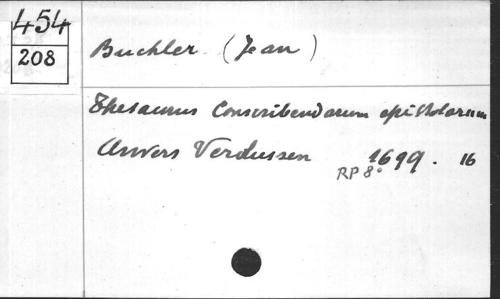 454
208
Buchler (Jean)
Thesaurus Conscribendarum epistolarum
Anvers Verdussen 1699. 16
RP 8°